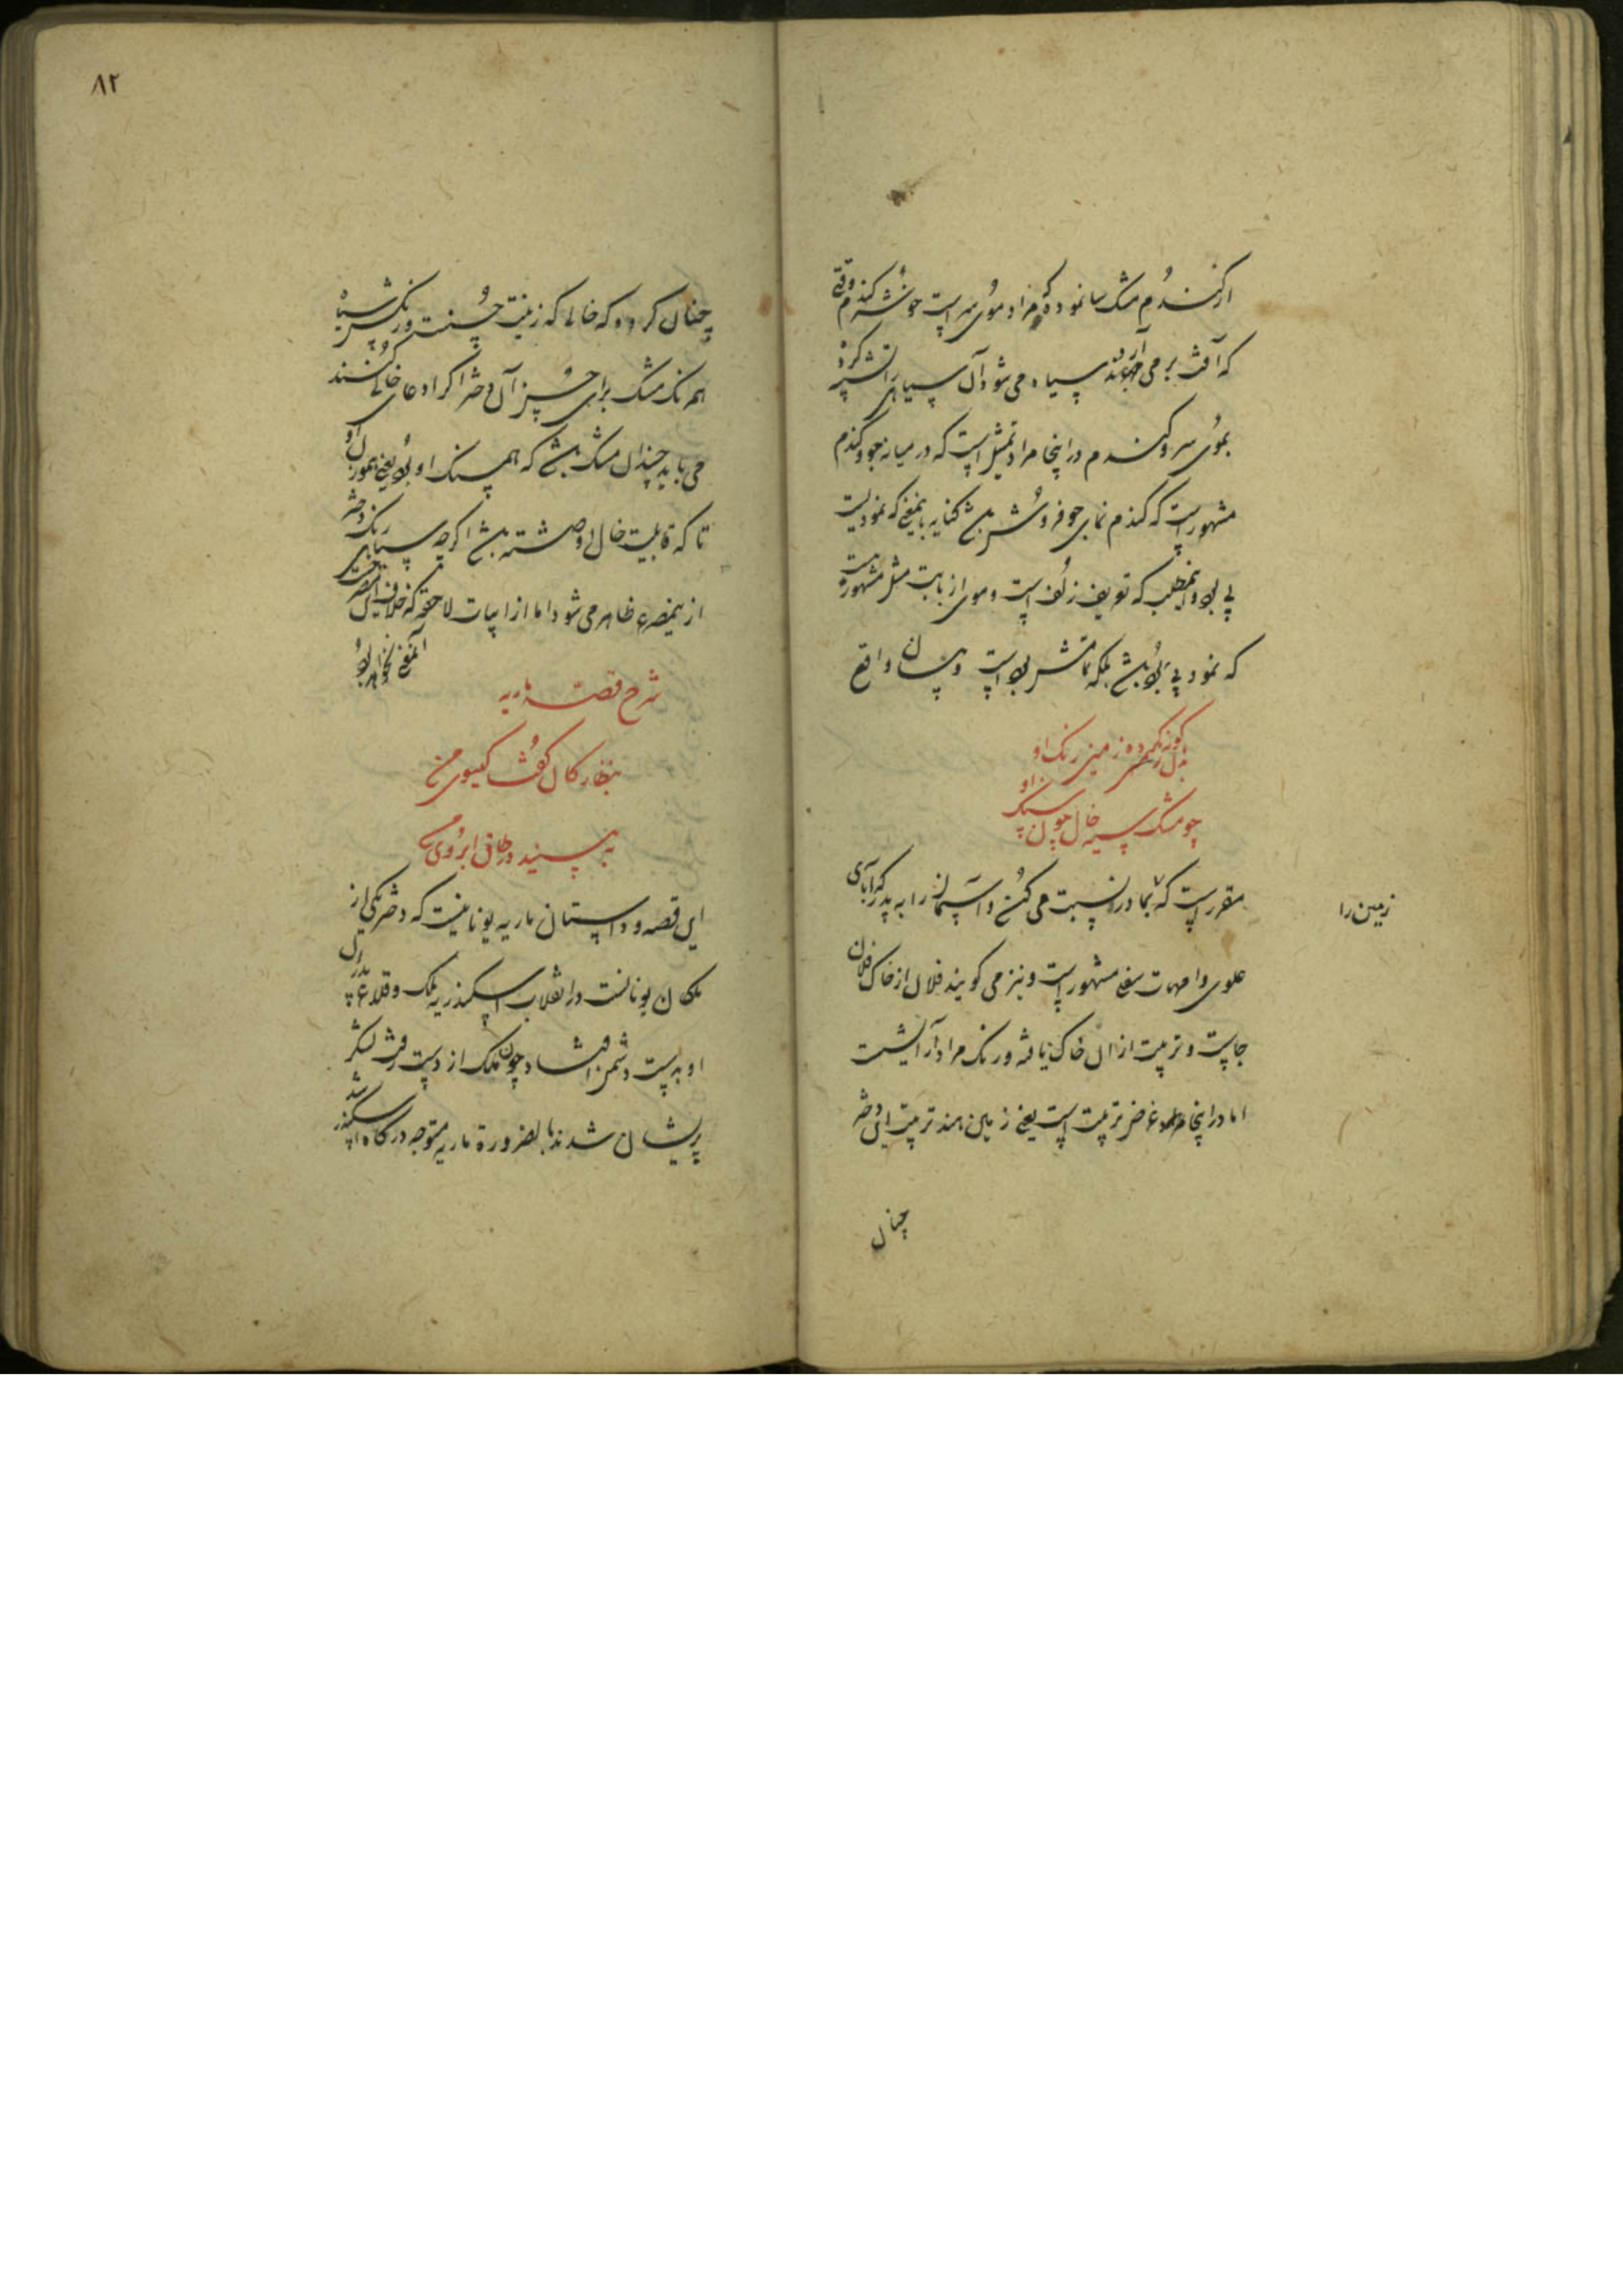 از گندم مشک سا نموده که مراد موی سر است خوشه گندم وقتی
که آفت برمی آرند سیاه می شود آن سیاهی را تشبیه کرد
بموی سر و گندم در اینجا مراد تمثیل است که در میانه جو و گندم
مشهور است که گندم نمای جو فروش باشد کنایه باینمعنی که نمودیست
بی بود و اینمطلب که تعریف زلف است و موی از بابت مثل مشهور
که نمود بی بود باشد بلکه تمامش بود است و
واقع
زمین رنگ او
چو مشک سیه خال چون سنگ او
مقرر است که بمادر نسبت می کنند و آسمان را به پدر که آبای
زمین را
علوی و امهات سفلی مشهور است و نیز می گویند فلان از خاک فلان
جاست و تربیت از ان خاک یافته و رنگ مراد آرایشست
اما در اینجا غرض تربیت است یعنی زمین هند تربیت این دختر
چنان
۸۲
چنان کرده که خالی که زینت حسنست و رنگش سیاه
همرنگ مشک برای حسن آن دختر اگر ادعای خالی کنند
می باید چندان مشک باشد که همسنگ او بود یعنی هموزن او
تا که قابلیت خال او داشته باشد اگرچه سیاهی رنگ دختر
از اینمصرع ظاهر می شود اما از ابیات لاحقه که خلاف این
آنمعنی نخواهد بود
شرح قصه ماریه
بنظارگان گفت گیسوی من
به بینید در طاق ابروی من
این قصه و داستان ماریه یونانیست که دختر یکی از
ملکان یونانست در انقلاب اسکندریه ملک و قلاع پدر آن
او بدست دشمن افتاد چون ملک از دست رفت لشکر
پریشان شدند بالضرورة ماریه متوجه درگاه اسکندر شد